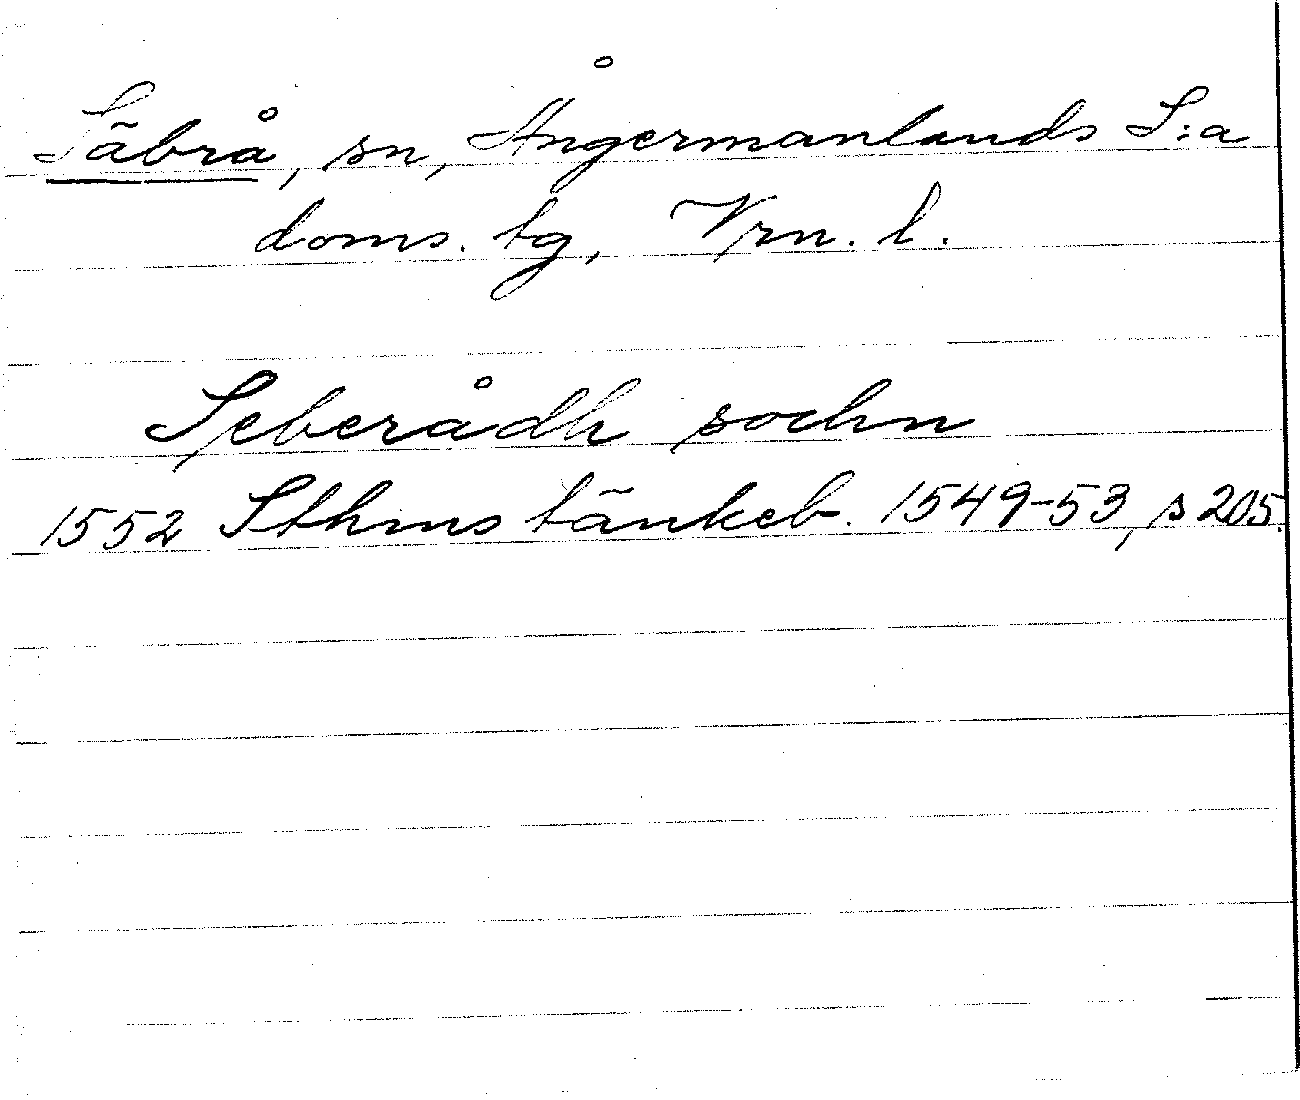 Säbrå, sn, Ångermanlands S:a
doms. tg, Vrn. l.
Seberådh sochn
1552 Sthms tänkeb. 1549-53, s 205.